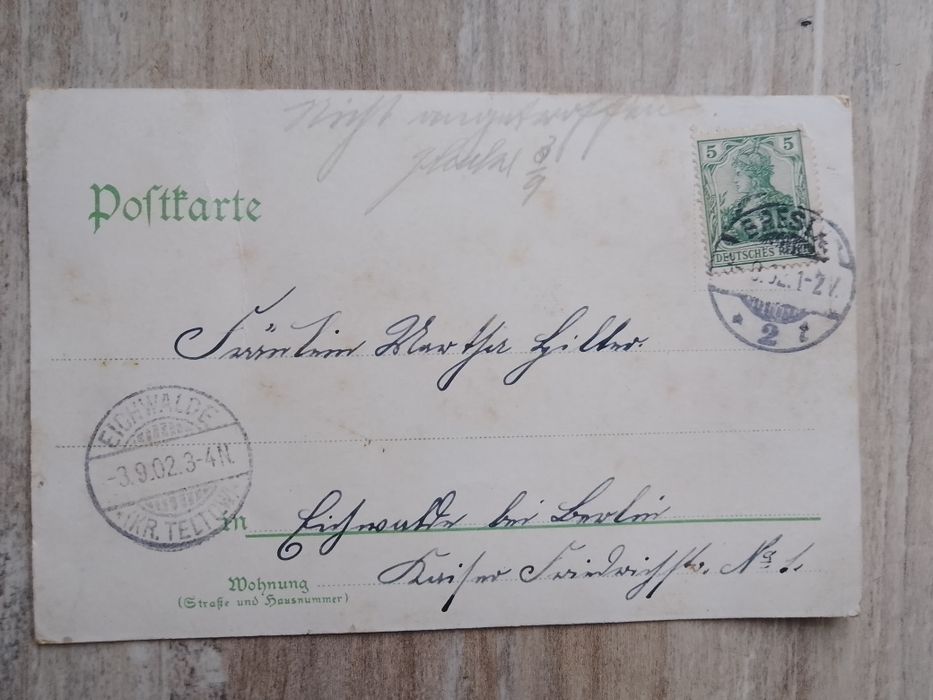 Nicht angetroffen
3/9
Postkarte
5
DEUTSCHES REICH
BRESL
02.1-2V.
* 2 t
Fräulein Martha Hilter
EICHWALDE
-3.9.02.3-4N.
(KR. TELTOW)
in Eichwalde bei Berlin
Kaiser Friedrichstr. No 1.
Wohnung
(Straße und Hausnummer)